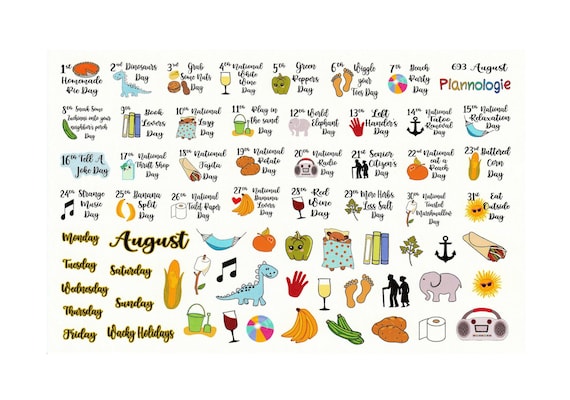 1st Homemade Pie Day
2nd Dinosaurs Day
3rd Grab Some Nuts Day
4th National White Wine Day
5th Green Peppers Day
6th Wiggle your Toes Day
7th Beach Party Day
693 August
Plannologie
8th Sneak Some Zucchinis onto your neighbors porch Day
9th Book Lovers Day
10th National Lazy Day
11th Play in the sand Day
12th World Elephant Day
13th Left Hander's Day
14th National Tattoo Removal Day
15th National Relaxation Day
16th Tell A Joke Day
17th National Thrift Shop Day
18th National Fajita Day
19th National Potato Day
20th National Radio Day
21st Senior Citizen's Day
22nd National eat a Peach Day
23rd Buttered Corn Day
24th Strange Music Day
25th Banana Split Day
26th National Toilet Paper Day
27th National Banana Lovers Day
28th Red Wine Day
29th More Herbs Less Salt Day
30th National Toasted Marshmallow Day
31st Eat Outside Day
Monday
August
Tuesday
Saturday
Wednesday
Sunday
Thursday
Friday
Wacky Holidays